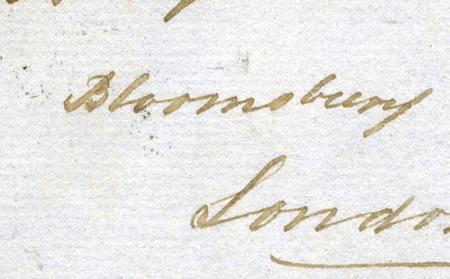 Bloomsbury
London